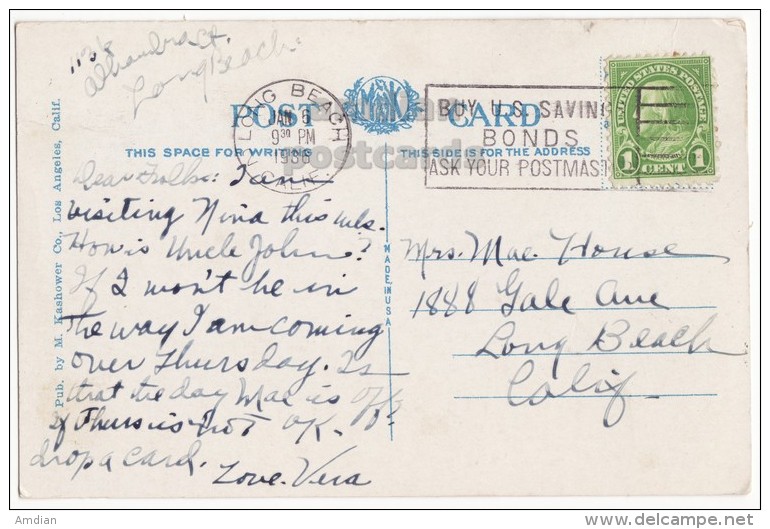 1138
Alhambra Ct.
Long Beach.
POST CARD
M K
LONG BEACH
JAN 6
9 30 PM
1936
CALIF.
BUY U.S. SAVIN
BONDS
ASK YOUR POSTMAST
UNITED STATES POSTAGE
1 CENT 1
THIS SPACE FOR WRITING
THIS SIDE IS FOR THE ADDRESS
postcards
Pub. by M. Kashower Co., Los Angeles, Calif.
MADE IN USA
Dear Folks: I am
visiting Nina this wk.
How is Uncle John?
If I won't be in
the way I am coming
over Thursday. Is
that the day Mac is off?
If Thurs is not OK.
drop a card.
Love. Vera
Mrs. Mae House
1888 Gale Ave
Long Beach
Calif.
Amdian
www.delcampe.net